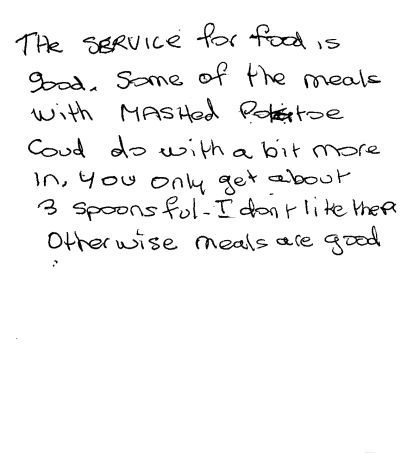 THE SERVICE for food is
good. Some of the meals
with MASHed Potatoe
Coud do with a bit more
In, you only get about
3 spoonsful - I don't like
Otherwise meals are good